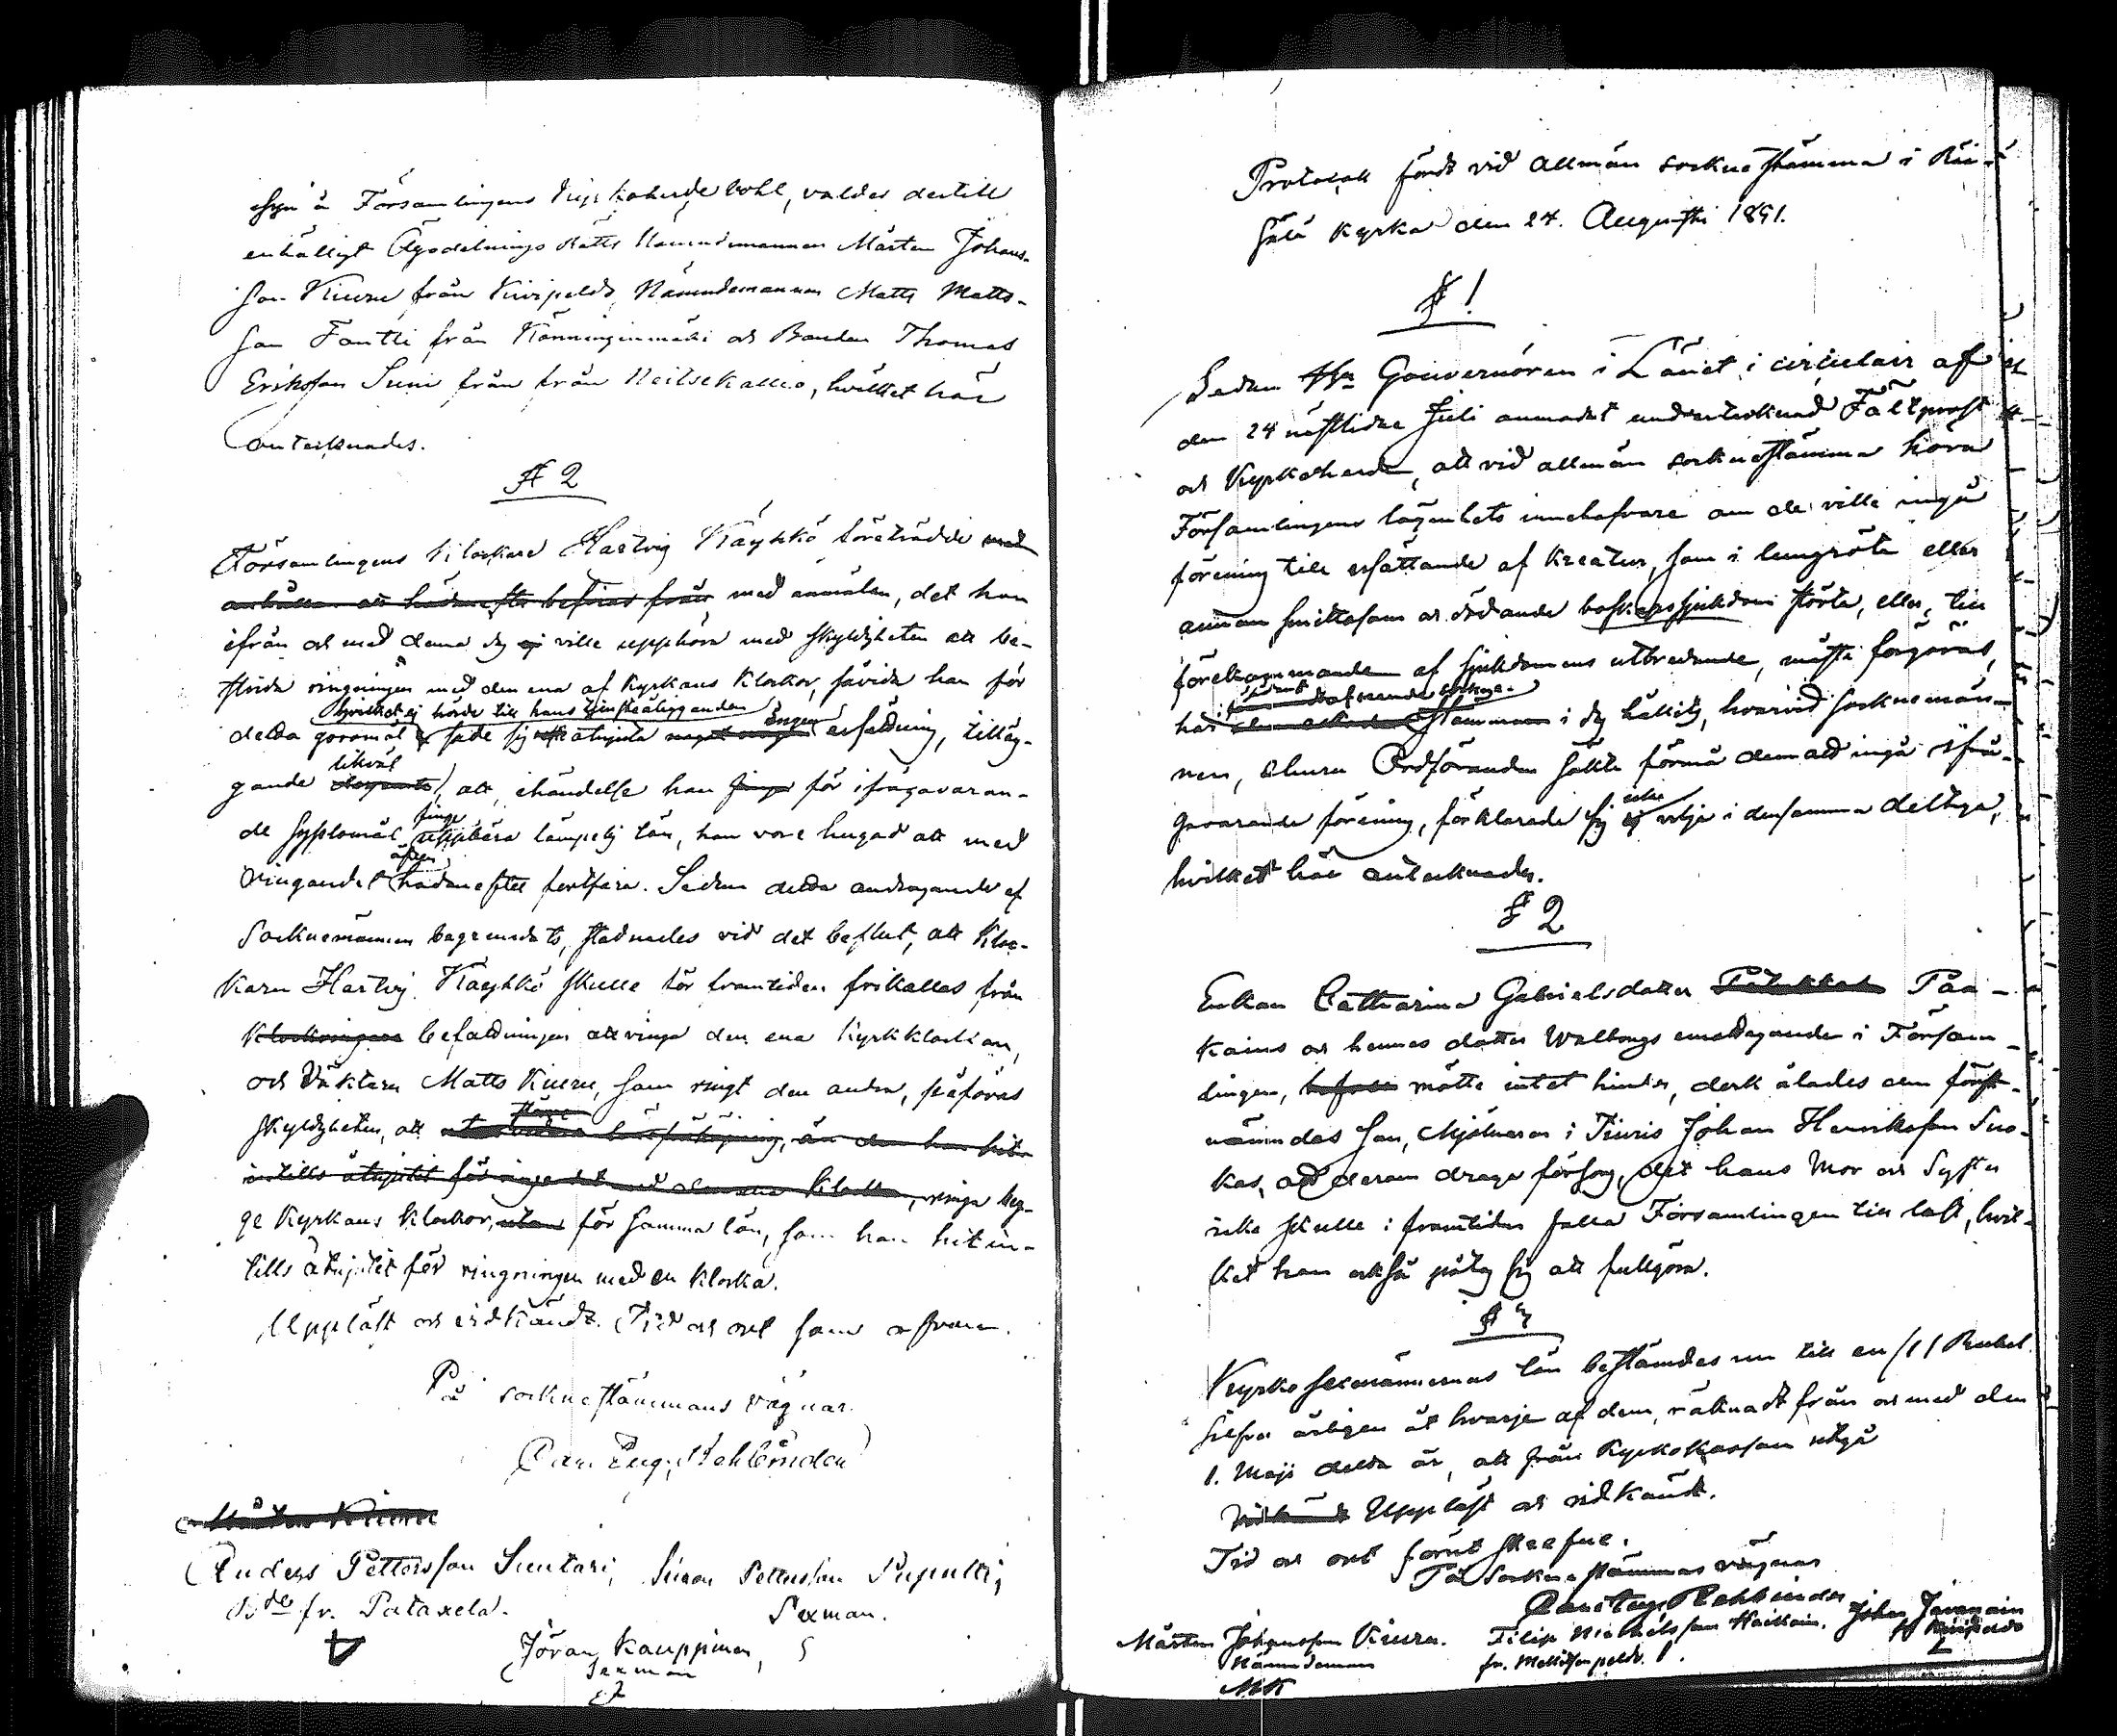 syn å Församlingens Kyrkoherde bohl, valdes dertill
enhälligt Ägodelnings Rätts Nämndemannen Mårten Johans-
son Kiuru från Kuripolds, Nämndemannen Matts Matts-
son Fantti från Könninginmäki och Bonden Thomas
Eriksson Suni från från Neitsekallio, hvilket här
antecknades.
§ 2
Församlingens Klockare Hartvig Käyhkö företrädde med
anhållan att hädanefter befrias från med anmälan, det han
ifrån och med denna dag ej ville upphöra med skyldigheten att be-
strida ringningen med den ena af Kyrkans Klockor, såvida han för
hvilket ej hörde till hans tjensteåligganden
detta göromål sade sig åtnjuta något ingen ersättning, tilläg-
gande likväl, att ihändelse han finge för ifrågavaran-
de sysslomål finge uppbära lämpelig lön, han vore hugad att med
ringandet äfven hädanefter fortfara. Sedan detta andragande af
Socknemännen begrundats, stadnades vid det beslut, att Kloc-
karen Hartvig Käyhkö skulle för framtiden frikallas från
Klockringare befattningen att ringa den ena Kyrkklockan,
och Väktaren Matts Kiuru, som ringt den andra, påföras
skyldigheten, att
intills åtnjutit för ringandet med den ena Klockan, ringa beg-
ge Kyrkans Klockor, utan för samma lön, som han hitin-
tills åtnjutit för ringningen med en Klocka.
Uppläst och vidkändt. Tid och ort som ofvan.
På socknestämmans vägnar
Carl Aug. Rehbinder
Mårten Kiuru
Anders Pettersson Suutari, Simon Pettersson Pupulli,
Bde fr. Pataxela. Sexman.
Jöran Kauppinen,
Sexman
Protocoll fördt vid allmän socknestämma i Räi-
sälä Kyrka den 24. Augusti 1851.
§ 1
Sedan Hr Gouvernören i Länet i circulair af
den 24 nästlidne Juli anmodat undertecknad Fältprost
och Kyrkoherde, att vid allmän socknestämma höra
Församlingens lägenhets innehafvare om de ville ingå
förening till ersättande af Kreatur, som i lungröta eller
annan smittosam och dödande boskapssjukdom störta, eller, till
förekommande af sjukdomens utbredande, måste förgöras,
har stämman i dag hållits, hvarvid Socknemän-
nen, ehuru Ordföranden sökte förmå dem att ingå ifrå-
gavarande förening, förklarade sig ej icke vilja i densamma deltaga,
hvilket här antecknades.
§ 2
Enkan Catharina Gabrielsdotter Paa-
kains och hennes dotter Walborgs emottagande i Försam-
lingen, mötte intet hinder, dock ålades den först-
nämndas son, Mjölnaren i Tiuris Johan Henriksson Suo-
kas, att derom draga försorg, det hans Mor och Syster
icke skulle i framtiden falla Församlingen till last, hvil-
ket han också påtog sig att fullgöra.
§ 3
Kyrko sexmännernas lön bestämdes nu till en /1/ Rubel
silfver årligen åt hvarje af dem, räknadt från och med den
1. Maji detta år, att från Kyrkokassan utgå
Uppläst och vidkändt.
Tid och ort förut skrefne.
På Socknestämmas vägnar
Carl Aug. Rehbinder
Mårten Johansson Kiuru. Filip Michelsson Haikoin. Johan Jävenain
Nämndeman
MK